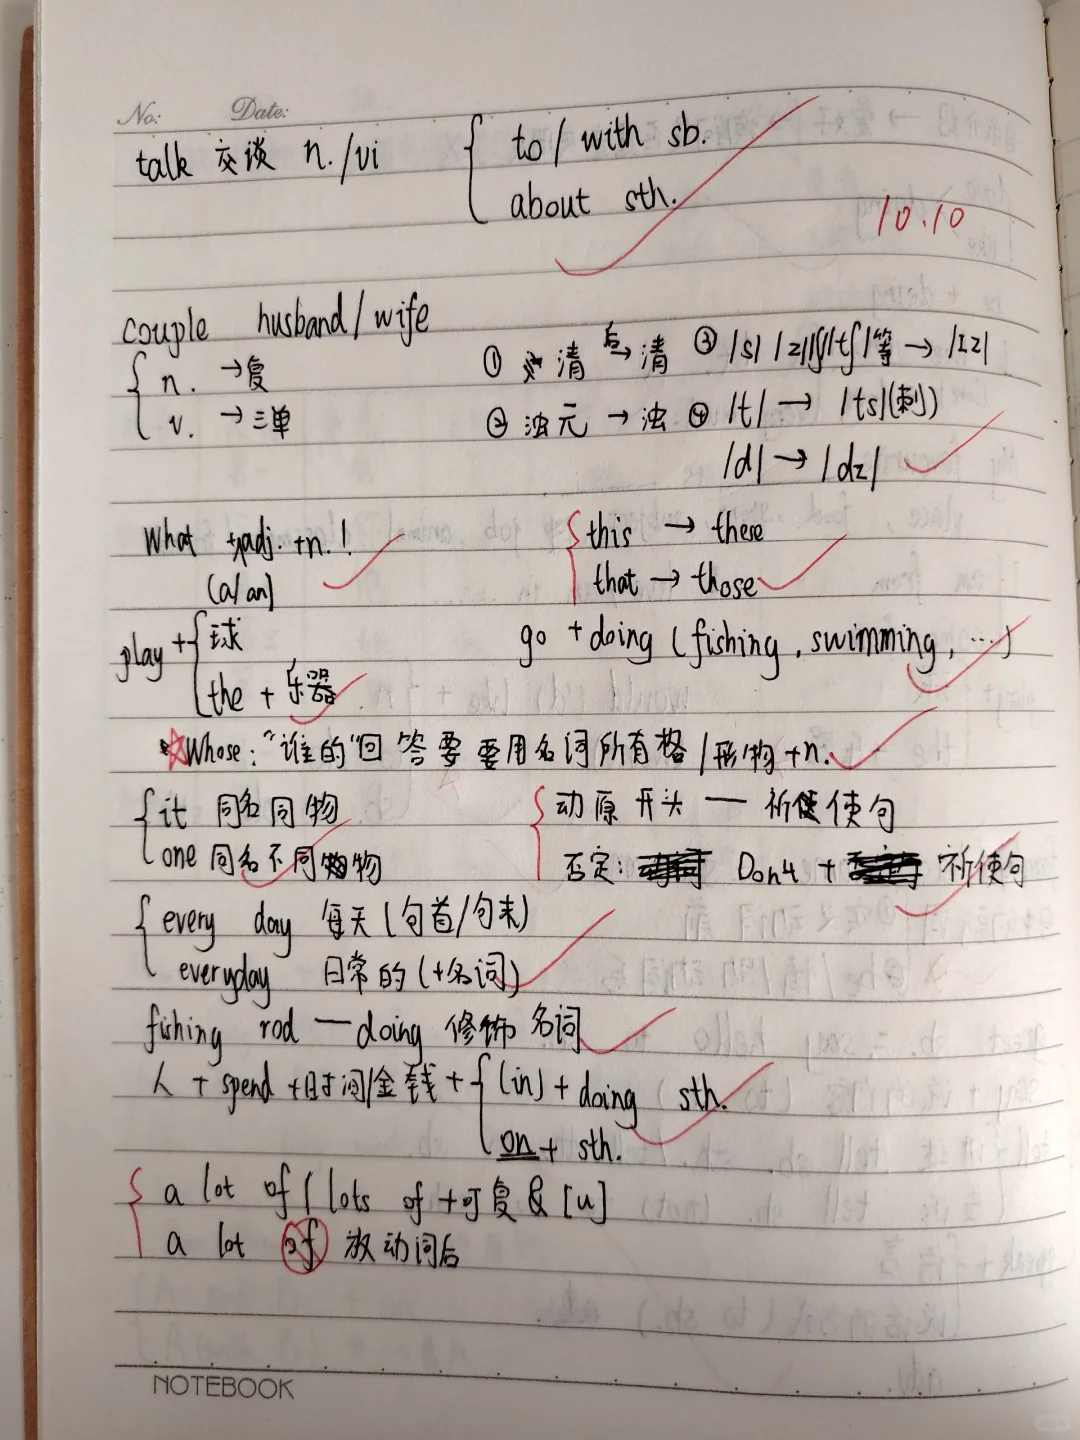 No: Date:
talk 交谈 n./vi { to / with sb.
about sth.
10.10
couple husband / wife
{ n. →复
v. →三单
① 清后→清 ③ /s/ /z/ /ʃ/ /tʃ/等 → /ɪz/
② 浊元 → 浊 ④ /t/ → /ts/(刺)
/d/ → /dz/
What +adj. +n. !
(a/an)
{ this → these
that → those
play + { 球
the + 乐器
go + doing (fishing, swimming, ...)
☆Whose: "谁的"回答要要用名词所有格/形物+n.
{ it 同名同物
one 同名不同物
{ 动原开头 — 祈使句
否定: Don't + 祈使句
{ every day 每天 (句首/句末)
everyday 日常的 (+名词)
fishing rod — doing 修饰 名词
人 + spend +时间/金钱 + { (in) + doing sth.
on + sth.
{ a lot of / lots of +可复&[u]
a lot of 放动词后
NOTEBOOK